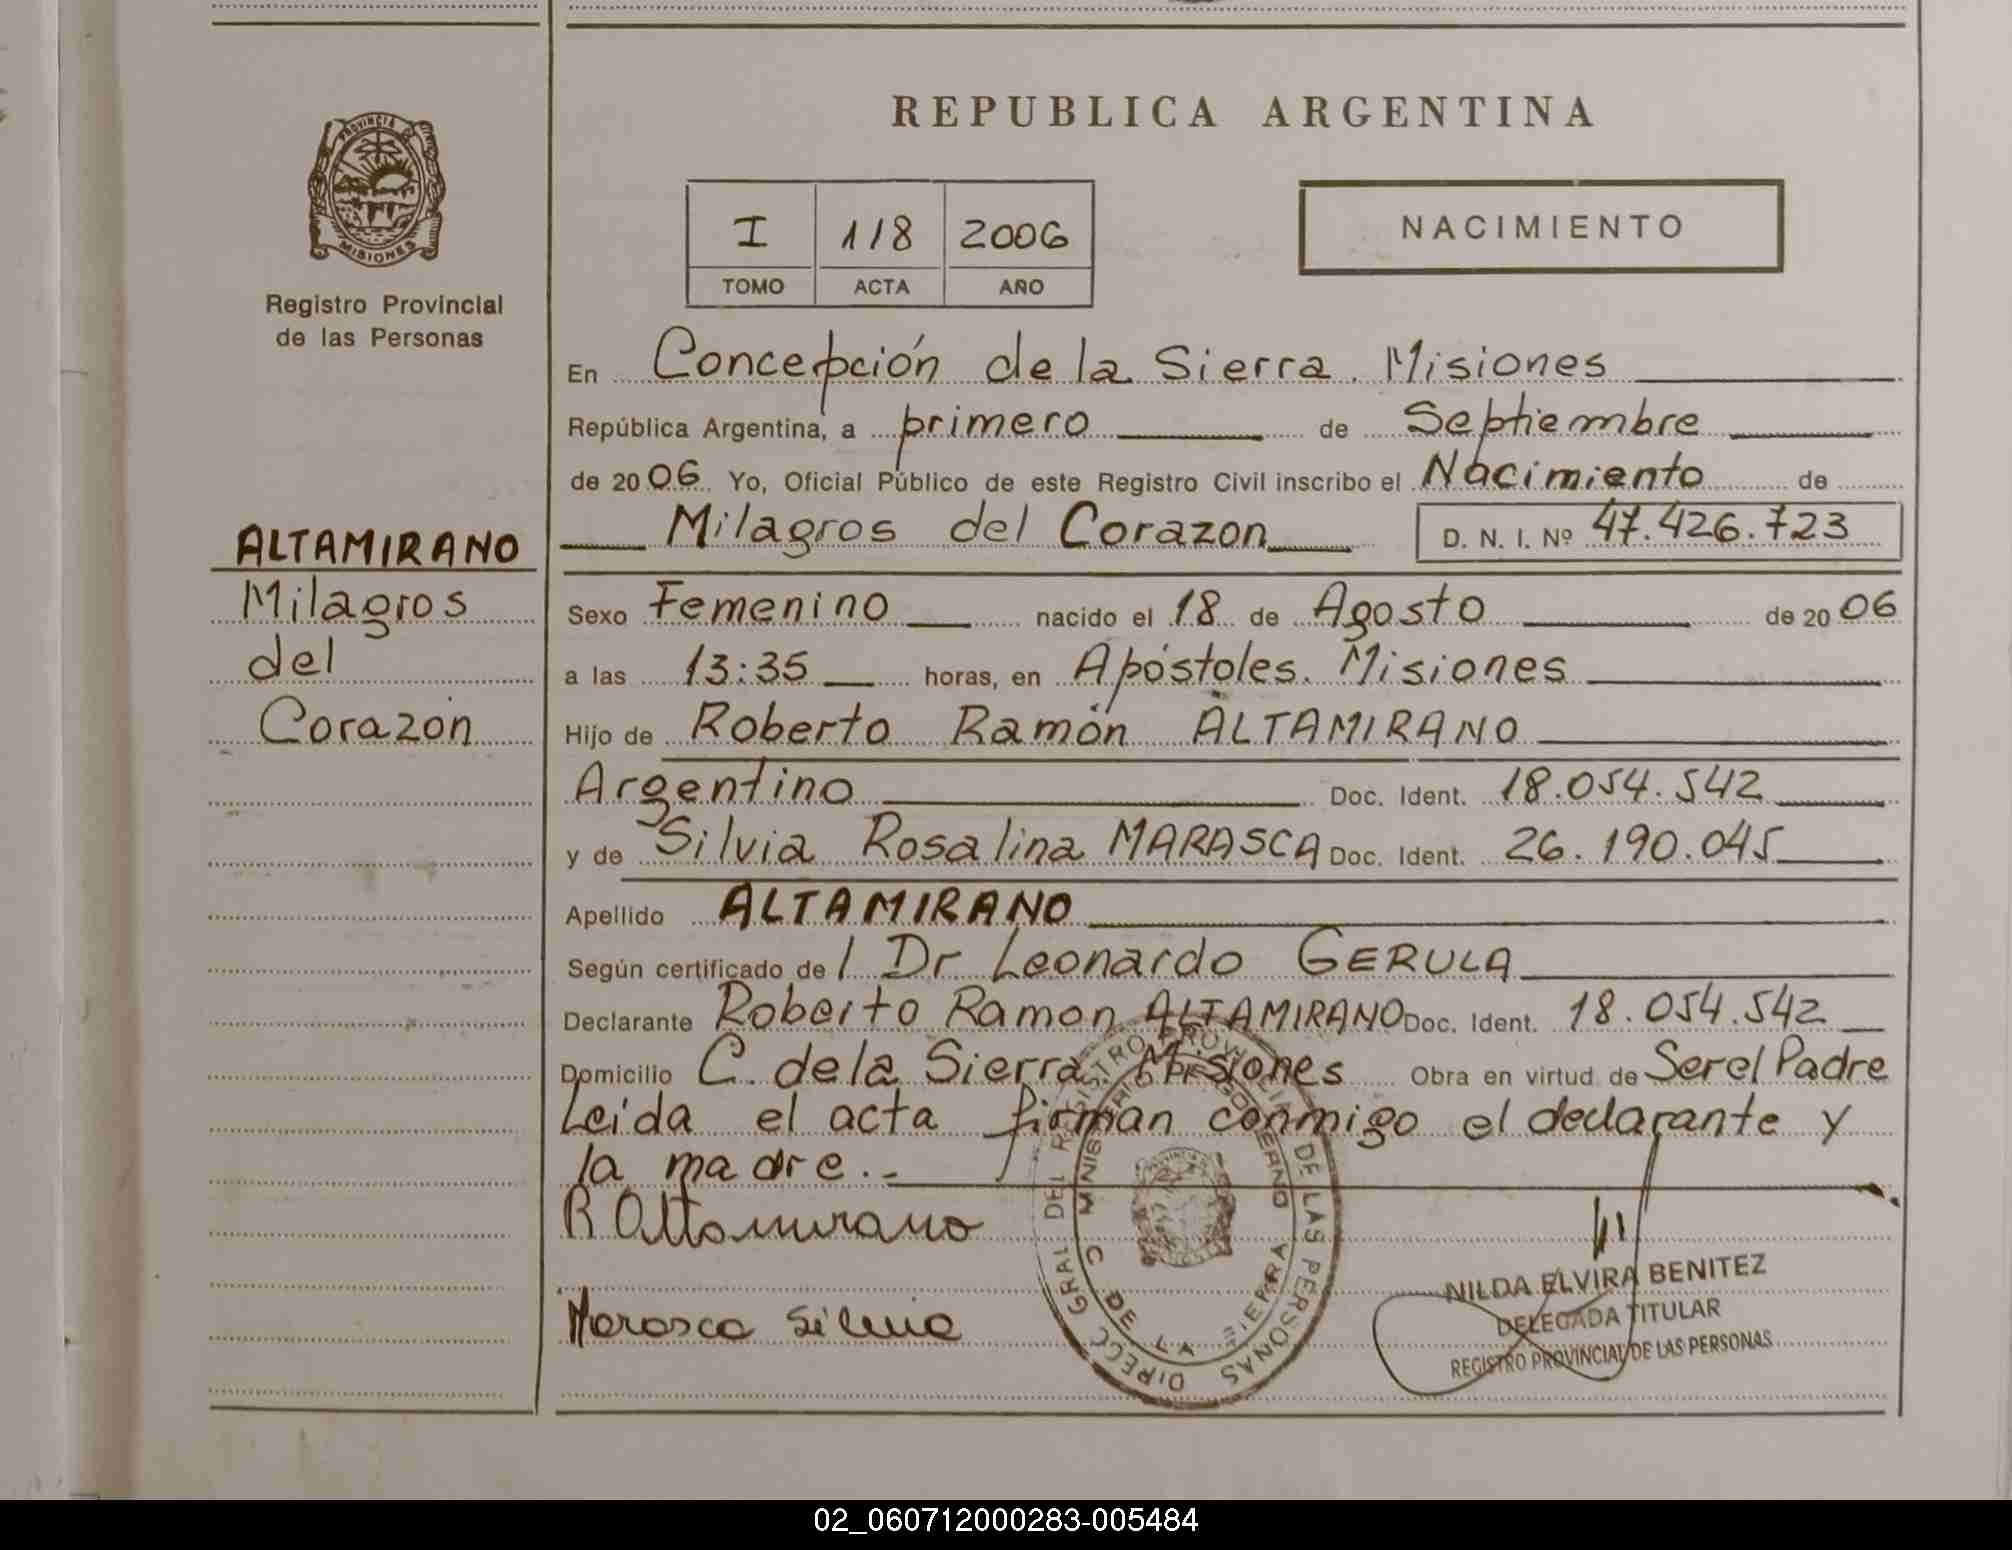 REPUBLICA ARGENTINA
PROVINCIA DE
MISIONES
Registro Provincial
de las Personas
I 118 2006
TOMO ACTA AÑO
NACIMIENTO
En Concepción de la Sierra. Misiones
República Argentina, a primero de Septiembre
de 2006 Yo, Oficial Público de este Registro Civil inscribo el Nacimiento de
Milagros del Corazon D. N. I. Nº 47.426.723
ALTAMIRANO
Milagros
del
Corazon
Sexo Femenino nacido el 18 de Agosto de 2006
a las 13:35 horas, en Apóstoles. Misiones
Hijo de Roberto Ramón ALTAMIRANO
Argentino Doc. Ident. 18.054.542
y de Silvia Rosalina MARASCA Doc. Ident. 26.190.045
Apellido ALTAMIRANO
Según certificado de / Dr Leonardo GERULA
Declarante Roberto Ramon ALTAMIRANO Doc. Ident. 18.054.542
Domicilio C. de la Sierra Misiones Obra en virtud de Ser el Padre
Leida el acta firman conmigo el declarante y
la madre.-
R Altamirano
Marasca Silvia
DIRECC GRAL DEL REGISTRO PROVINCIAL DE LAS PERSONAS
MINISTERIO DE GOBIERNO
C DE LA SIERRA
NILDA ELVIRA BENITEZ
DELEGADA TITULAR
REGISTRO PROVINCIAL DE LAS PERSONAS
02_060712000283-005484